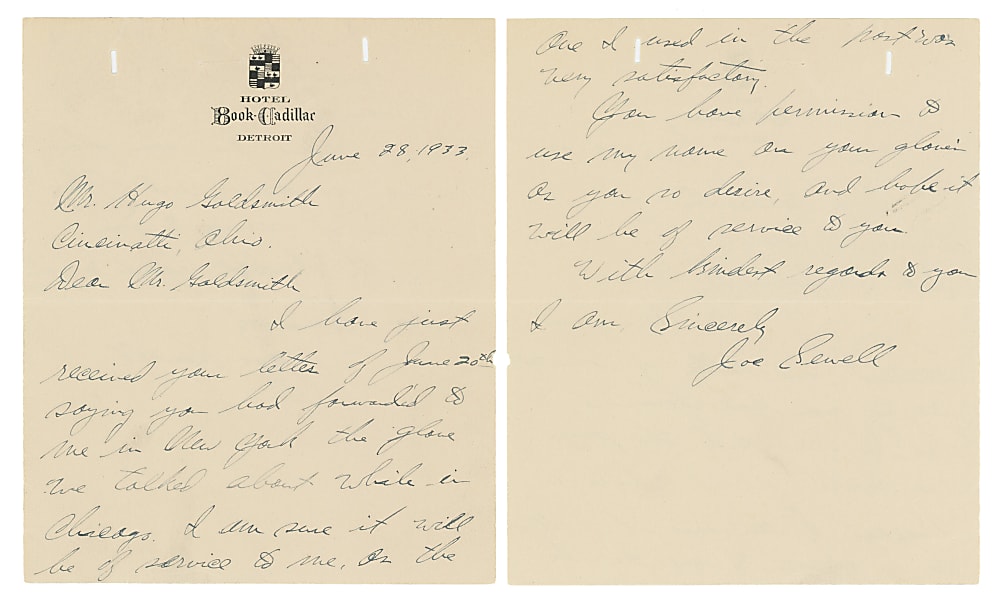 HOTEL
Book-Cadillac
DETROIT
June 28, 1933.
Mr. Hugo Goldsmith
Cincinatti, Ohio.
Dear Mr. Goldsmith
I have just
received your letter of June 20th
saying you had forwarded to
me in New York the glove
we talked about while in
Chicago. I am sure it will
be of service to me, as the
one I used in the past was
very satisfactory.
You have permission to
use my name on your gloves
as you so desire, and hope it
will be of service to you.
With kindest regards to you
I am, Sincerely
Joe Sewell